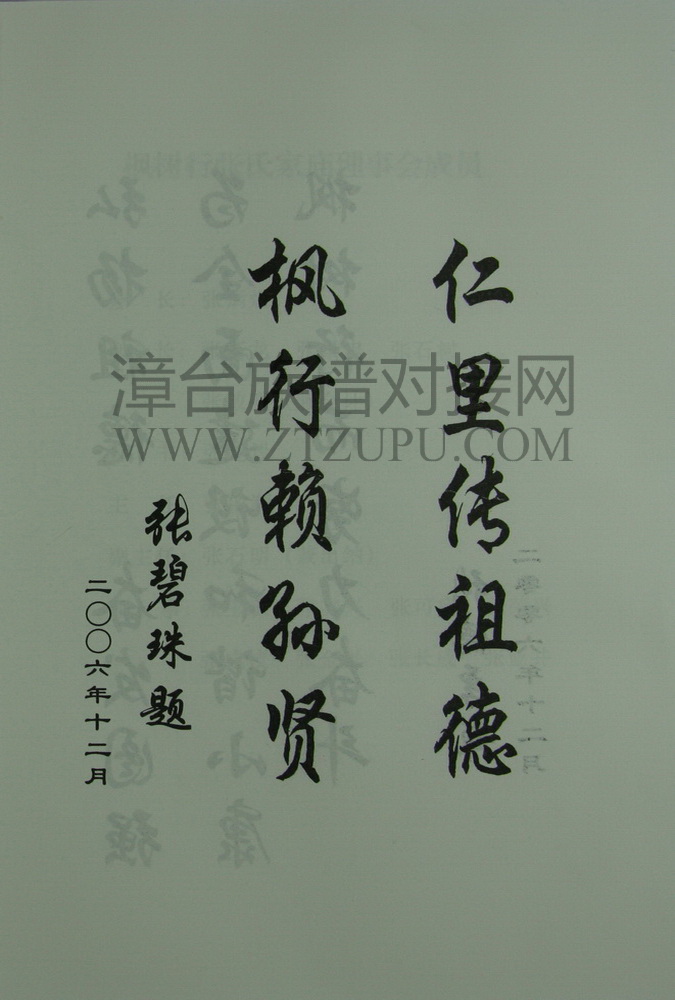 仁里传祖德
枫行赖孙贤
张碧珠题
二〇〇六年十二月
漳台族谱对接网
WWW.ZTZUPU.COM